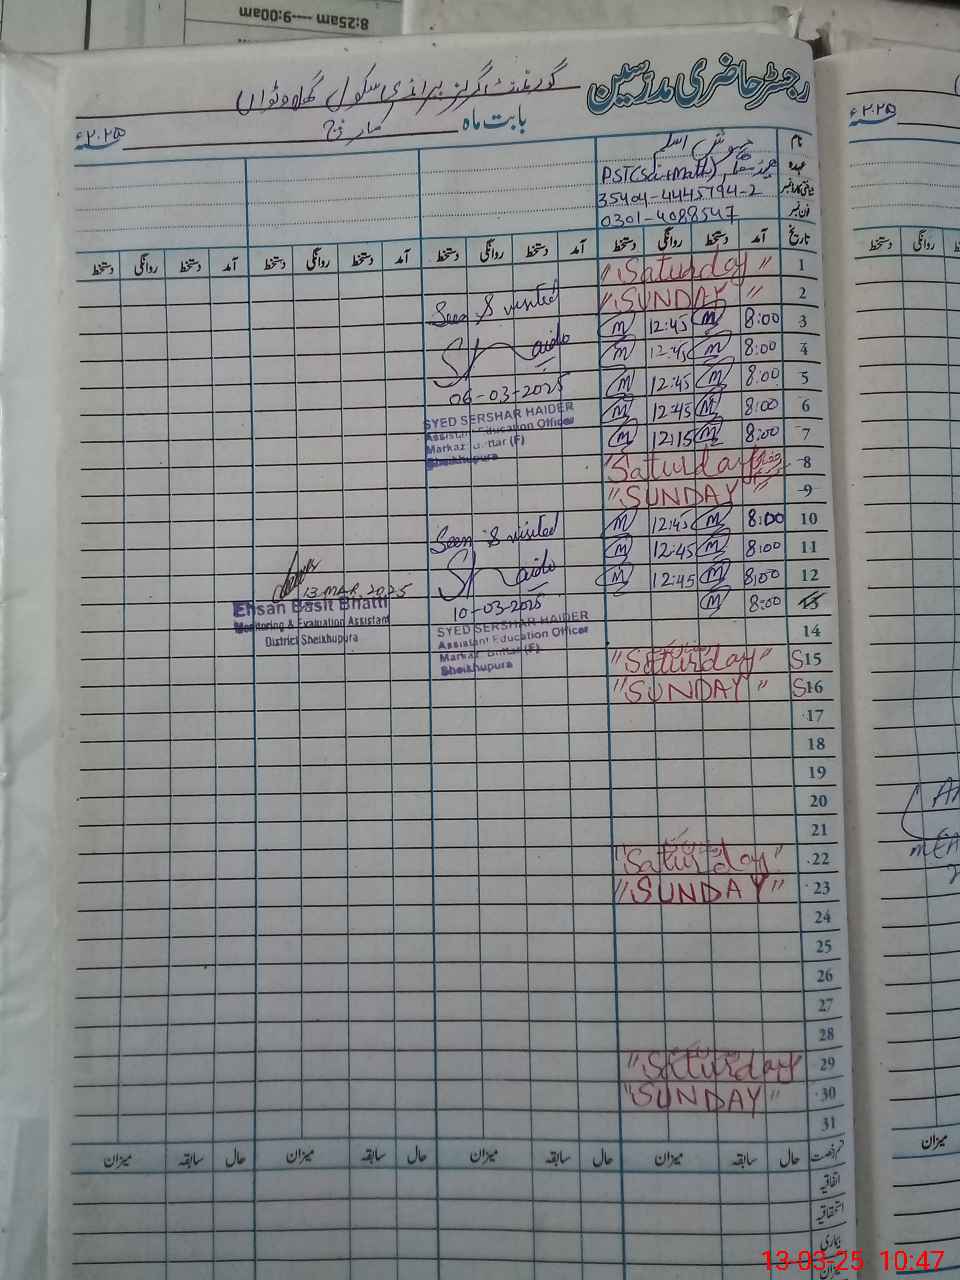 8:25am ---9:00am
رجسٹر حاضری مدرسین
گورنمنٹ گرلز پرائمری سکول
بابت ماہ مارچ ۲۰۲۵ء
۲۰۲۵ء
نام
عہدہ PST(Sci+Math)
شناختی کارڈ نمبر 35404-4445794-2
فون نمبر 0301-4088547
تاریخ آمد دستخط روانگی دستخط آمد دستخط روانگی دستخط آمد دستخط روانگی دستخط آمد دستخط روانگی دستخط
روانگی دستخط
1 "Saturday"
2 "SUNDAY"
3 8:00 m 12:45 m
4 8:00 m 12:45 m
5 8:00 m 12:45 m
6 8:00 m 12:45 m
7 8:00 m 12:15 m
8 "Saturday
9 "SUNDAY"
10 8:00 m 12:45 m
11 8:00 m 12:45 m
12 8:00 m 12:45 m
13 8:00 m
14
S15 "Saturday"
S16 "SUNDAY"
17
18
19
20
21
22 "Saturday"
23 "SUNDAY"
24
25
26
27
28
29 "Saturday
30 "SUNDAY"
31
Seen & visited
06-03-2025
SYED SERSHAR HAIDER
Assistant Education Officer
Markaz (F)
Sheikhupura
Seen & visited
10-03-2025
SYED SERSHAR HAIDER
Assistant Education Officer
Markaz (F)
Sheikhupura
13 MAR 2025
Ehsan Basit Bhatti
Monitoring & Evaluation Assistant
District Sheikhupura
قسم رخصت حال سابقہ میزان حال سابقہ میزان حال سابقہ میزان حال سابقہ میزان
میزان
اتفاقیہ
استحقاقیہ
بیماری
میزان
13-03-25 10:47